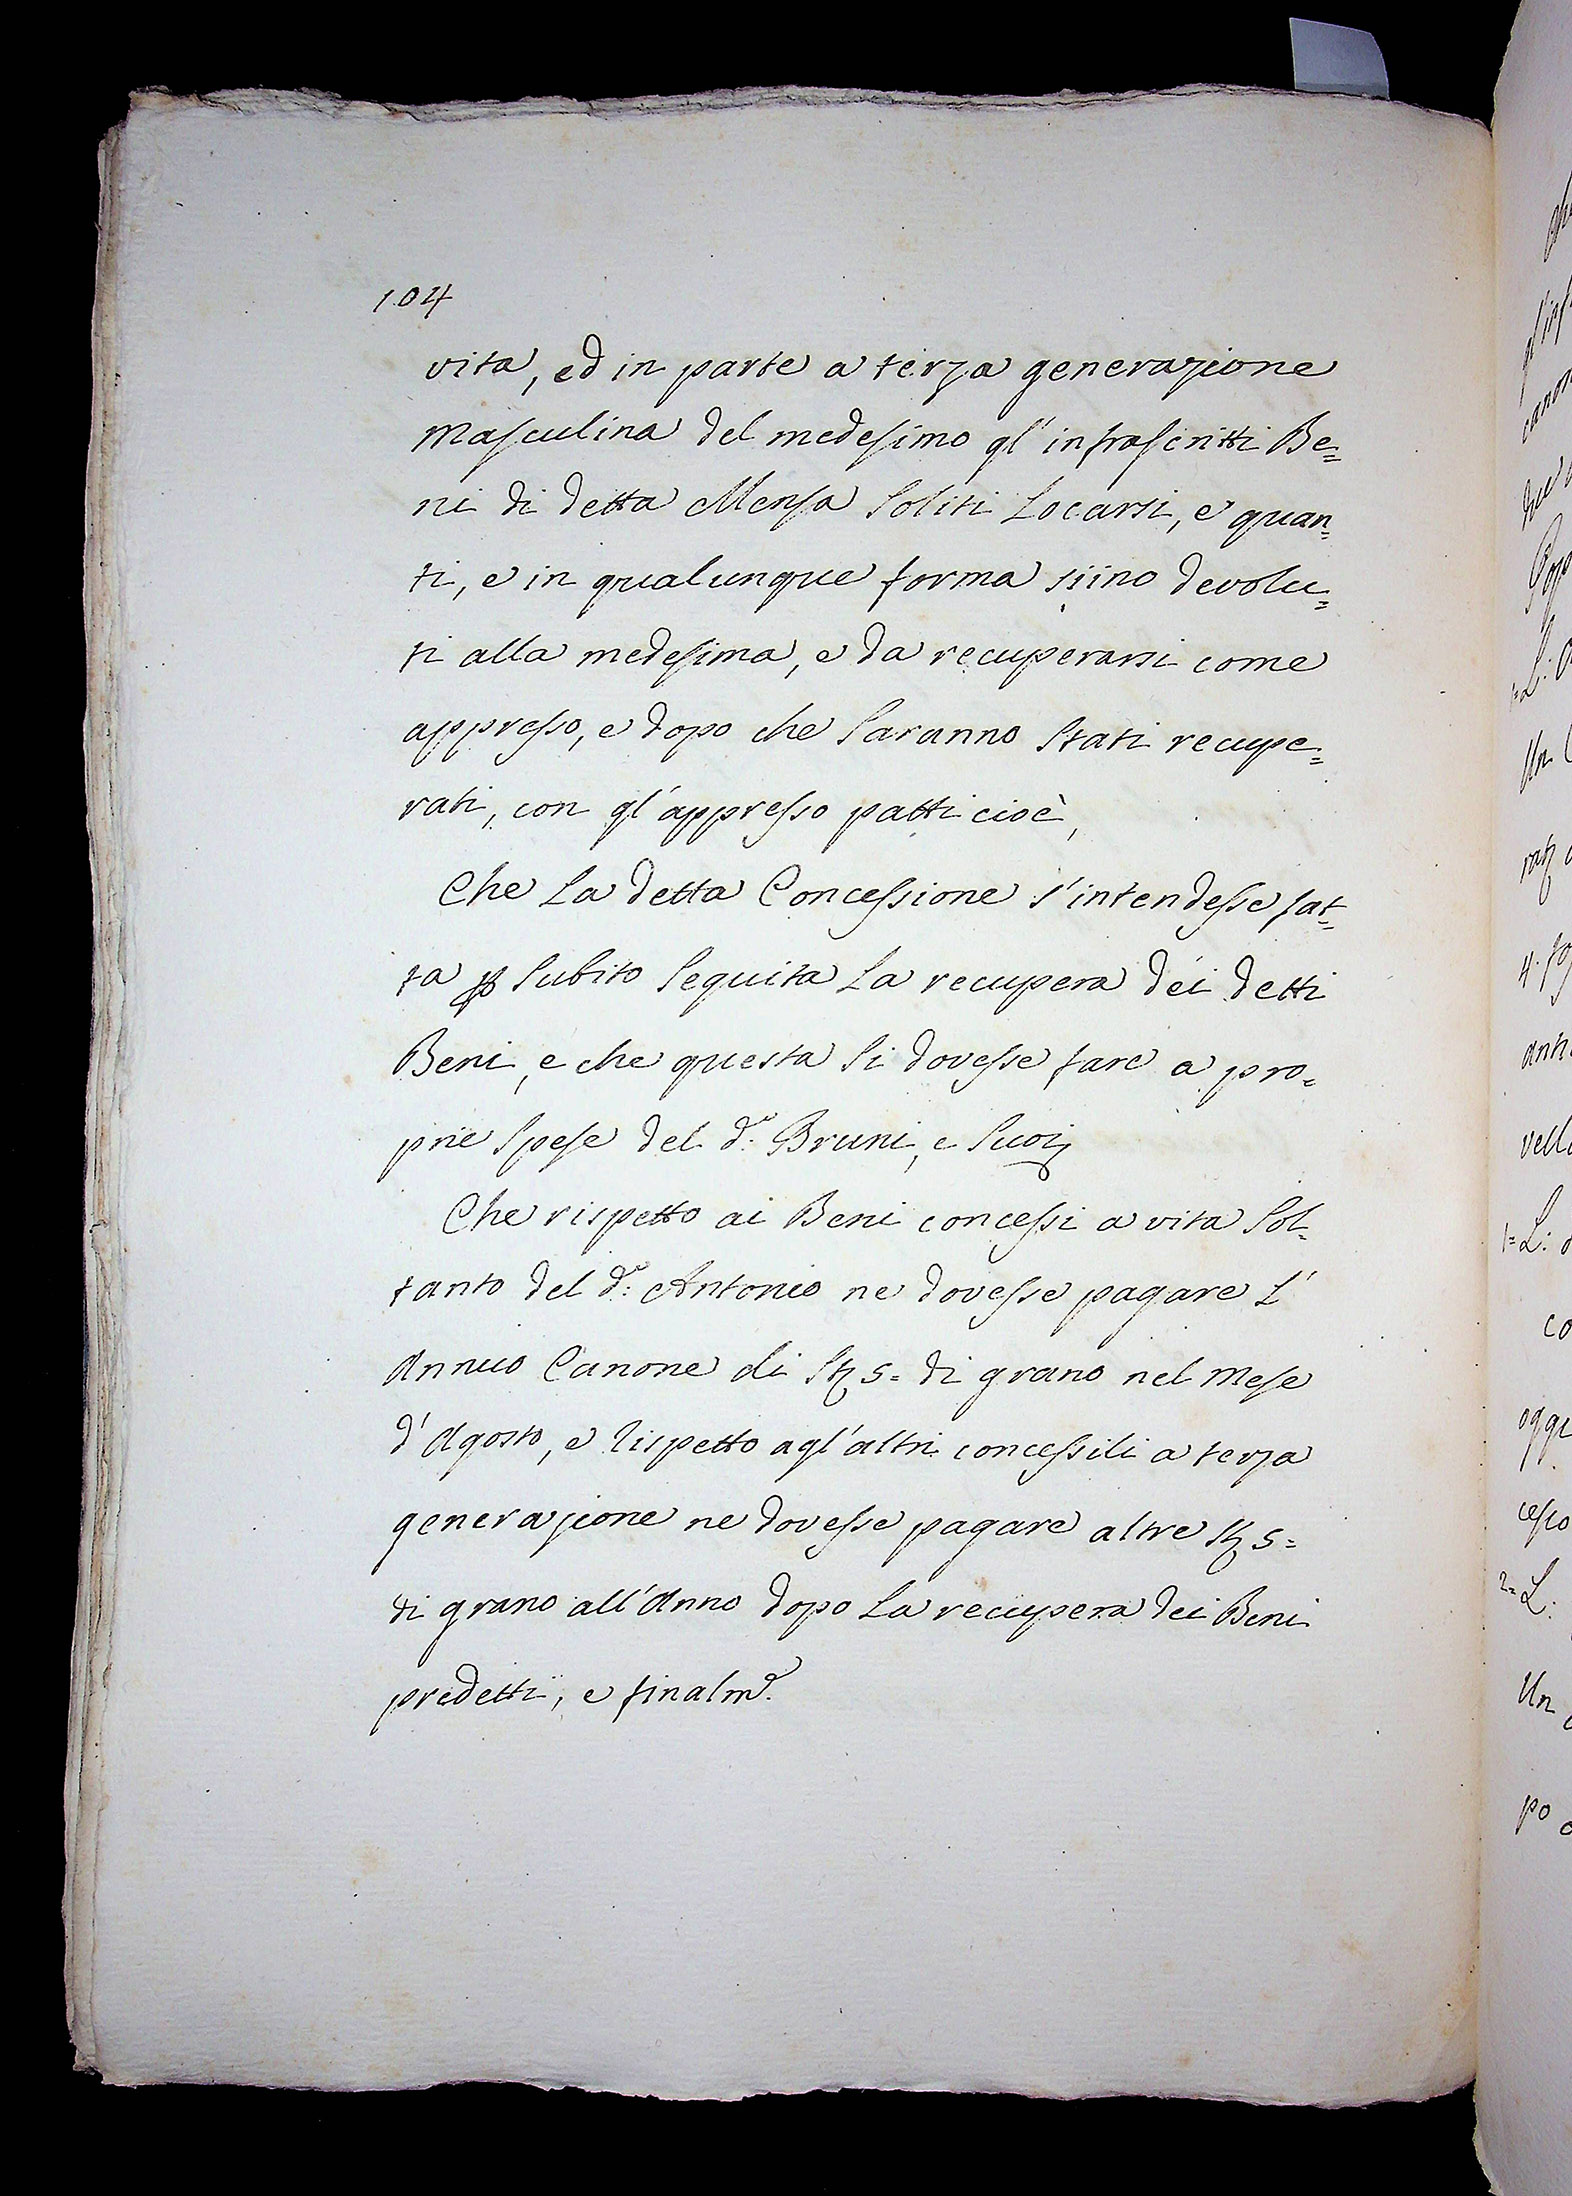 104
vita, ed in parte a terza generazione
Masculina del medesimo gl'infrascritti Be=
ni di detta Mensa Soliti Locarsi, e quan=
ti, e in qualunque forma siino devolu=
ti alla medesima, e da recuperarsi come
appresso, e dopo che Saranno Stati recupe=
rati, con gl'appresso patti cioè,
Che La detta Concessione s'intendesse fat=
ta ꝑ Subito Seguita La recupera dei detti
Beni, e che questa Si dovesse fare a pro=
prie Spese del d.º Bruni, e Suoi
Che rispetto ai Beni concessi a vita Sol=
tanto del d.º Antonio ne dovesse pagare L'
Annuo Canone di St 5= di grano nel Mese
d'Agosto, e rispetto agl'altri concessili a terza
generazione ne dovesse pagare altre St 5=
di grano all'Anno dopo La recupera dei Beni
predetti, e finalm.e
1= L:
Un
4.
1= L:
co
2= L:
Un
po